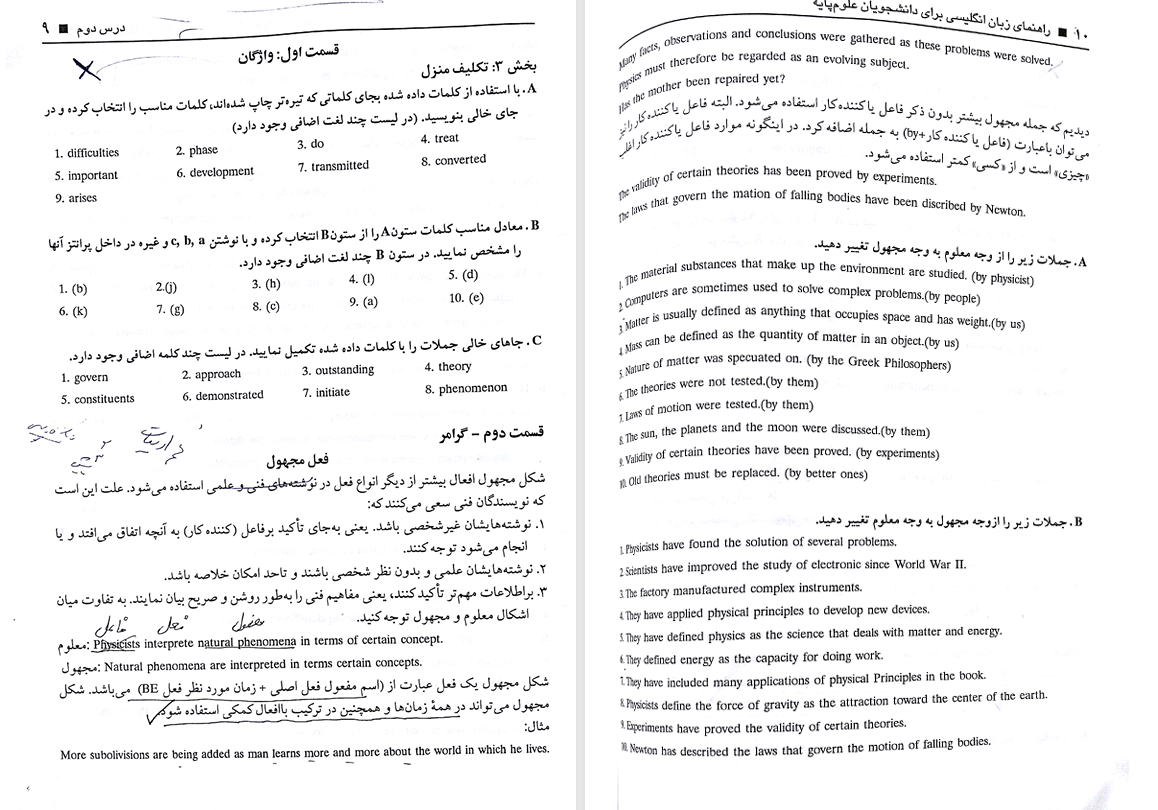 درس دوم ■ ۹
قسمت اول: واژگان
بخش ۳: تکلیف منزل
A. با استفاده از کلمات داده شده بجای کلماتی که تیره‌تر چاپ شده‌اند، کلمات مناسب را انتخاب کرده و در
جای خالی بنویسید. (در لیست چند لغت اضافی وجود دارد)
1. difficulties 2. phase 3. do 4. treat
5. important 6. development 7. transmitted 8. converted
9. arises
B. معادل مناسب کلمات ستون A را از ستون B انتخاب کرده و با نوشتن c, b, a و غیره در داخل پرانتز آنها
را مشخص نمایید. در ستون B چند لغت اضافی وجود دارد.
1. (b) 2.(j) 3. (h) 4. (l) 5. (d)
6. (k) 7. (g) 8. (c) 9. (a) 10. (e)
C. جاهای خالی جملات را با کلمات داده شده تکمیل نمایید. در لیست چند کلمه اضافی وجود دارد.
1. govern 2. approach 3. outstanding 4. theory
5. constituents 6. demonstrated 7. initiate 8. phenomenon
قسمت دوم – گرامر
فعل مجهول
شکل مجهول افعال بیشتر از دیگر انواع فعل در نوشته‌های فنی و علمی استفاده می‌شود. علت این است
که نویسندگان فنی سعی می‌کنند که:
۱. نوشته‌هایشان غیرشخصی باشد. یعنی به‌جای تأکید برفاعل (کننده کار) به آنچه اتفاق می‌افتد و یا
انجام می‌شود توجه کنند.
۲. نوشته‌هایشان علمی و بدون نظر شخصی باشند و تاحد امکان خلاصه باشد.
۳. براطلاعات مهم‌تر تأکید کنند، یعنی مفاهیم فنی را به‌طور روشن و صریح بیان نمایند. به تفاوت میان
اشکال معلوم و مجهول توجه کنید.
فاعل فعل مفعول
معلوم: Physicists interprete natural phenomena in terms of certain concept.
مجهول: Natural phenomena are interpreted in terms certain concepts.
شکل مجهول یک فعل عبارت از (اسم مفعول فعل اصلی + زمان مورد نظر فعل BE) می‌باشد. شکل
مجهول می‌تواند در همهٔ زمان‌ها و همچنین در ترکیب باافعال کمکی استفاده شود.
مثال:
More subolivisions are being added as man learns more and more about the world in which he lives.
۱۰ ■ راهنمای زبان انگلیسی برای دانشجویان علوم‌پایه
Many facts, observations and conclusions were gathered as these problems were solved.
Physics must therefore be regarded as an evolving subject.
Has the mother been repaired yet?
دیدیم که جمله مجهول بیشتر بدون ذکر فاعل یا کننده کار استفاده می‌شود. البته فاعل یا کننده کار را نیز
می‌توان باعبارت (فاعل یا کننده کار+by) به جمله اضافه کرد. در اینگونه موارد فاعل یا کننده کار اغلب
«چیزی» است و از «کسی» کمتر استفاده می‌شود.
The validity of certain theories has been proved by experiments.
The laws that govern the mation of falling bodies have been discribed by Newton.
A. جملات زیر را از وجه معلوم به وجه مجهول تغییر دهید.
1. The material substances that make up the environment are studied. (by physicist)
2. Computers are sometimes used to solve complex problems.(by people)
3. Matter is usually defined as anything that occupies space and has weight.(by us)
4. Mass can be defined as the quantity of matter in an object.(by us)
5. Nature of matter was specuated on. (by the Greek Philosophers)
6. The theories were not tested.(by them)
7. Laws of motion were tested.(by them)
8. The sun, the planets and the moon were discussed.(by them)
9. Validity of certain theories have been proved. (by experiments)
10. Old theories must be replaced. (by better ones)
B. جملات زیر را ازوجه مجهول به وجه معلوم تغییر دهید.
1. Physicists have found the solution of several problems.
2. Scientists have improved the study of electronic since World War II.
3. The factory manufactured complex instruments.
4. They have applied physical principles to develop new devices.
5. They have defined physics as the science that deals with matter and energy.
6. They defined energy as the capacity for doing work.
7. They have included many applications of physical Principles in the book.
8. Physicists define the force of gravity as the attraction toward the center of the earth.
9. Experiments have proved the validity of certain theories.
10. Newton has described the laws that govern the motion of falling bodies.